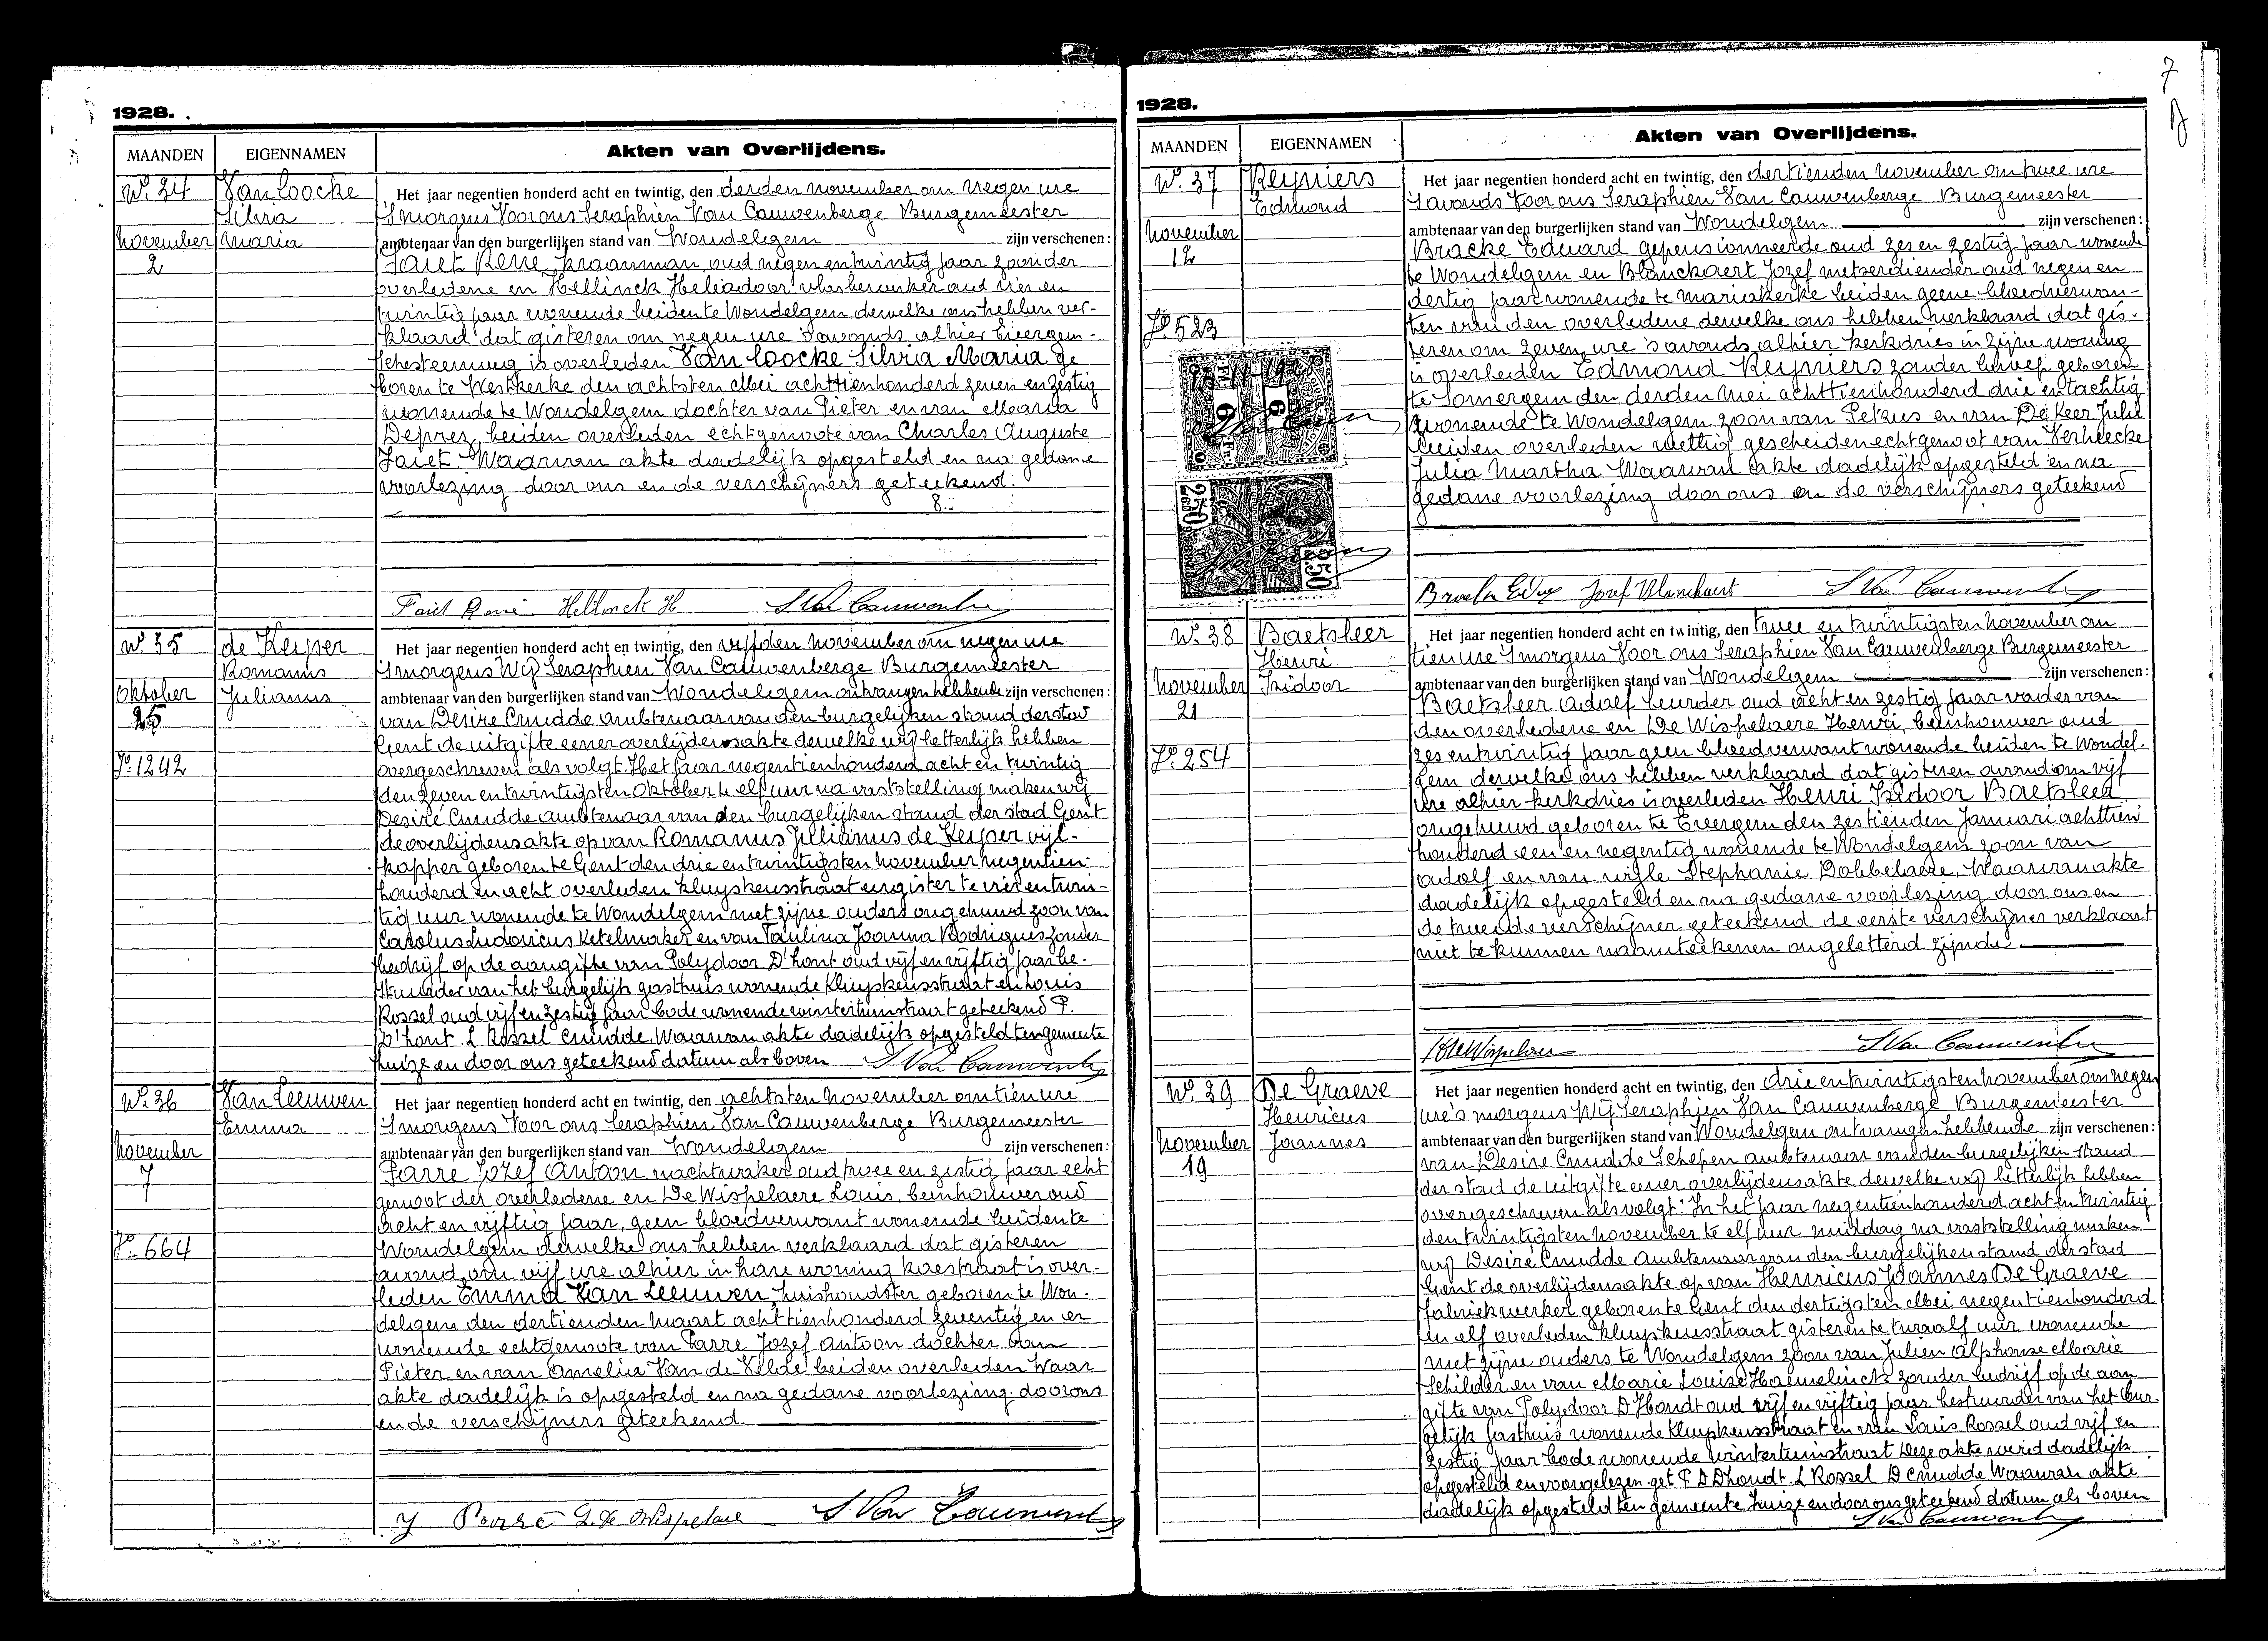 1928.
MAANDEN EIGENNAMEN Akten van Overlijdens.
No. 34 Van Loocke
Silvia
November Maria
2
Het jaar negentien honderd acht en twintig, den derden november om negen ure
'smorgens Voor ons Seraphien Van Cauwenberge Burgemeester
ambtenaar van den burgerlijken stand van Wondelgem zijn verschenen:
Faict René, kraanman oud negen en twintig jaar zoon der
overledene en Hellinck Heliodoor vlasbewerker oud vier en
twintig jaar wonende beiden te Wondelgem dewelke ons hebben ver-
klaard dat gisteren om negen ure 's avonds alhier Evergem-
schesteenweg is overleden Van Loocke Silvia Maria ge
boren te Westkerke den achtsten Mei achttienhonderd zeven en zestig
wonende te Wondelgem dochter van Pieter en van Maria
Deprez, beiden overleden echtgenoote van Charles Auguste
Faict. Waarvan akte dadelijk opgesteld en na gedane
voorlezing door ons en de verschijners geteekend.
8.
Faict René Hellinck H S Van Cauwenberg
No. 35 de Keyser
Romanus
Oktober Julianus
25
Jo. 1242
Het jaar negentien honderd acht en twintig, den vijfden november om negen ure
'smorgens Wij Seraphien Van Cauwenberge Burgemeester
ambtenaar van den burgerlijken stand van Wondelgem ontvangen hebbende zijn verschenen:
van Desire Cnudde ambtenaar van den burgelijken stand der stad
Gent de uitgifte eener overlijdensakte dewelke wij letterlijk hebben
overgeschreven als volgt. Het jaar negentienhonderd acht en twintig
den zeven en twintigsten Oktober te elf uur na vaststelling maken wij
Desiré Cnudde ambtenaar van den burgelijken stand der stad Gent
de overlijdensakte op van Romanus Julianus de Keyser vijl-
kapper geboren te Gent den drie en twintigsten november negentien-
honderd en acht overleden Kluyskensstraat eergister te vier en twin-
tig uur wonende te Wondelgem met zijne ouders ongehuwd zoon van
Carolus Ludovicus Ketelmaker en van Paulina Joanna Rodrigues zonder
bedrijf op de aangifte van Polydoor D'hont oud vijf en vijftig jaar be-
stuurder van het burgelijk gasthuis wonende Kluyskensstraat en Louis
Rossel oud vijf en zestig jaar bode wonende wintertuinstraat geteekend P.
D'hont. L Rossel Cnudde. Waarvan akte dadelijk opgesteld ten gemeente
huize en door ons geteekend datum als boven S Van Cauwenberg
No. 36 Van Leeuwen
Emma
November
7
Jo. 664
Het jaar negentien honderd acht en twintig, den achtsten november om tien ure
'smorgens Voor ons Seraphien Van Cauwenberge Burgemeester
ambtenaar van den burgerlijken stand van Wondelgem zijn verschenen:
Parre Jozef Antoon nachtwaker oud twee en zestig jaar echt
genoot der overledene en De Wispelaere Louis, beenhouwer oud
acht en vijftig jaar, geen bloedverwant wonende beiden te
Wondelgem dewelke ons hebben verklaard dat gisteren
avond om vijf ure alhier in hare woning koestraat is over-
leden Emma Van Leeuwen, huishoudster geboren te Won-
delgem den dertienden Maart achttienhonderd zeventig en er
wonende echtgenoote van Parre Jozef Antoon dochter van
Pieter en van Amelia Van de Velde beiden overleden Waar
akte dadelijk is opgesteld en na gedane voorlezing door ons
en de verschijners geteekend.
J Parre L. De Wispelaere S Van Cauwenberg
7
1928.
MAANDEN EIGENNAMEN Akten van Overlijdens.
No. 37 Reyniers
Edmond
November
12
Jo. 523
6 Fr
2.50
Het jaar negentien honderd acht en twintig, den dertienden november om twee ure
's avonds Voor ons Seraphien Van Cauwenberge Burgemeester
ambtenaar van den burgerlijken stand van Wondelgem zijn verschenen:
Bracke Eduard gepensionneerde oud zes en zestig jaar wonende
te Wondelgem en Blanckaert Jozef metserdiender oud negen en
dertig jaar wonende te Mariakerke beiden geene bloedverwan-
ten van den overledene dewelke ons hebben verklaard dat gis-
teren om zeven ure 's avonds alhier kerkdries in zijne woning
is overleden Edmond Reyniers zonder beroep geboren
te Somergem den derden Mei achttienhonderd drie en tachtig
wonende te Wondelgem zoon van Petrus en van De Keer Julie
beiden overleden wettig gescheiden echtgenoot van Verheecke
Julia Martha Waarvan akte dadelijk opgesteld en na
gedane voorlezing door ons en de verschijners geteekend
Jozef Blanckaert S Van Cauwenberg
No. 38 Baetsleer
Henri
November Isidoor
21
Jo. 254
Het jaar negentien honderd acht en twintig, den twee en twintigsten november om
tien ure 'smorgens Voor ons Seraphien Van Cauwenberge Burgemeester
ambtenaar van den burgerlijken stand van Wondelgem zijn verschenen:
Baetsleer Adolf leurder oud acht en zestig jaar vader van
den overledene en De Wispelaere Henri, beenhouwer oud
zes en twintig jaar geen bloedverwant wonende beiden te Wondel-
gem dewelke ons hebben verklaard dat gisteren avond om vijf
ure alhier kerkdries is overleden Henri Isidoor Baetsleer
ongehuwd geboren te Evergem den zestienden Januari achttien
honderd een en negentig wonende te Wondelgem zoon van
adolf en van wijle Stephanie Dobbelaere. Waarvan akte
dadelijk opgesteld en na gedane voorlezing door ons en
de tweede verschijner geteekend de eerste verschijner verklaart
niet te kunnen naamteekenen ongeletterd zijnde.
H De Wispelaere S Van Cauwenberg
No. 39 De Graeve
Henricus
November Joannes
19
Het jaar negentien honderd acht en twintig, den drie en twintigsten november om negen
ure 's morgens Wij Seraphien Van Cauwenberge Burgemeester
ambtenaar van den burgerlijken stand van Wondelgem ontvangen hebbende zijn verschenen:
van Desire Cnudde Schepen ambtenaar van den burgelijken stand
der stad de uitgifte eener overlijdensakte dewelke wij letterlijk hebben
overgeschreven als volgt: In het jaar negentienhonderd acht en twintig
den twintigsten november te elf uur middag na vaststelling maken
wij Desiré Cnudde ambtenaar van den burgelijken stand der stad
Gent de overlijdensakte op van Henricus Joannes De Graeve
fabriekwerker geboren te Gent den dertigsten Mei negentienhonderd
en elf overleden Kluyskensstraat gisteren te twaalf uur wonende
met zijne ouders te Wondelgem zoon van Julien Alphonse Marie
Schilder en van Marie Louise Haemelinck zonder bedrijf op de aan
gifte van Polydoor D'Hondt oud vijf en vijftig jaar bestuurder van het bur-
gelijk gasthuis wonende Kluyskensstraat en van Louis Rossel oud vijf en
zestig jaar bode wonende wintertuinstraat Deze akte werd dadelijk
opgesteld en voorgelezen get P D Dhoudt. L Rossel D Cnudde Waarvan akte
dadelijk opgesteld ten gemeente huize en door ons geteekend datum als boven
S Van Cauwenberg